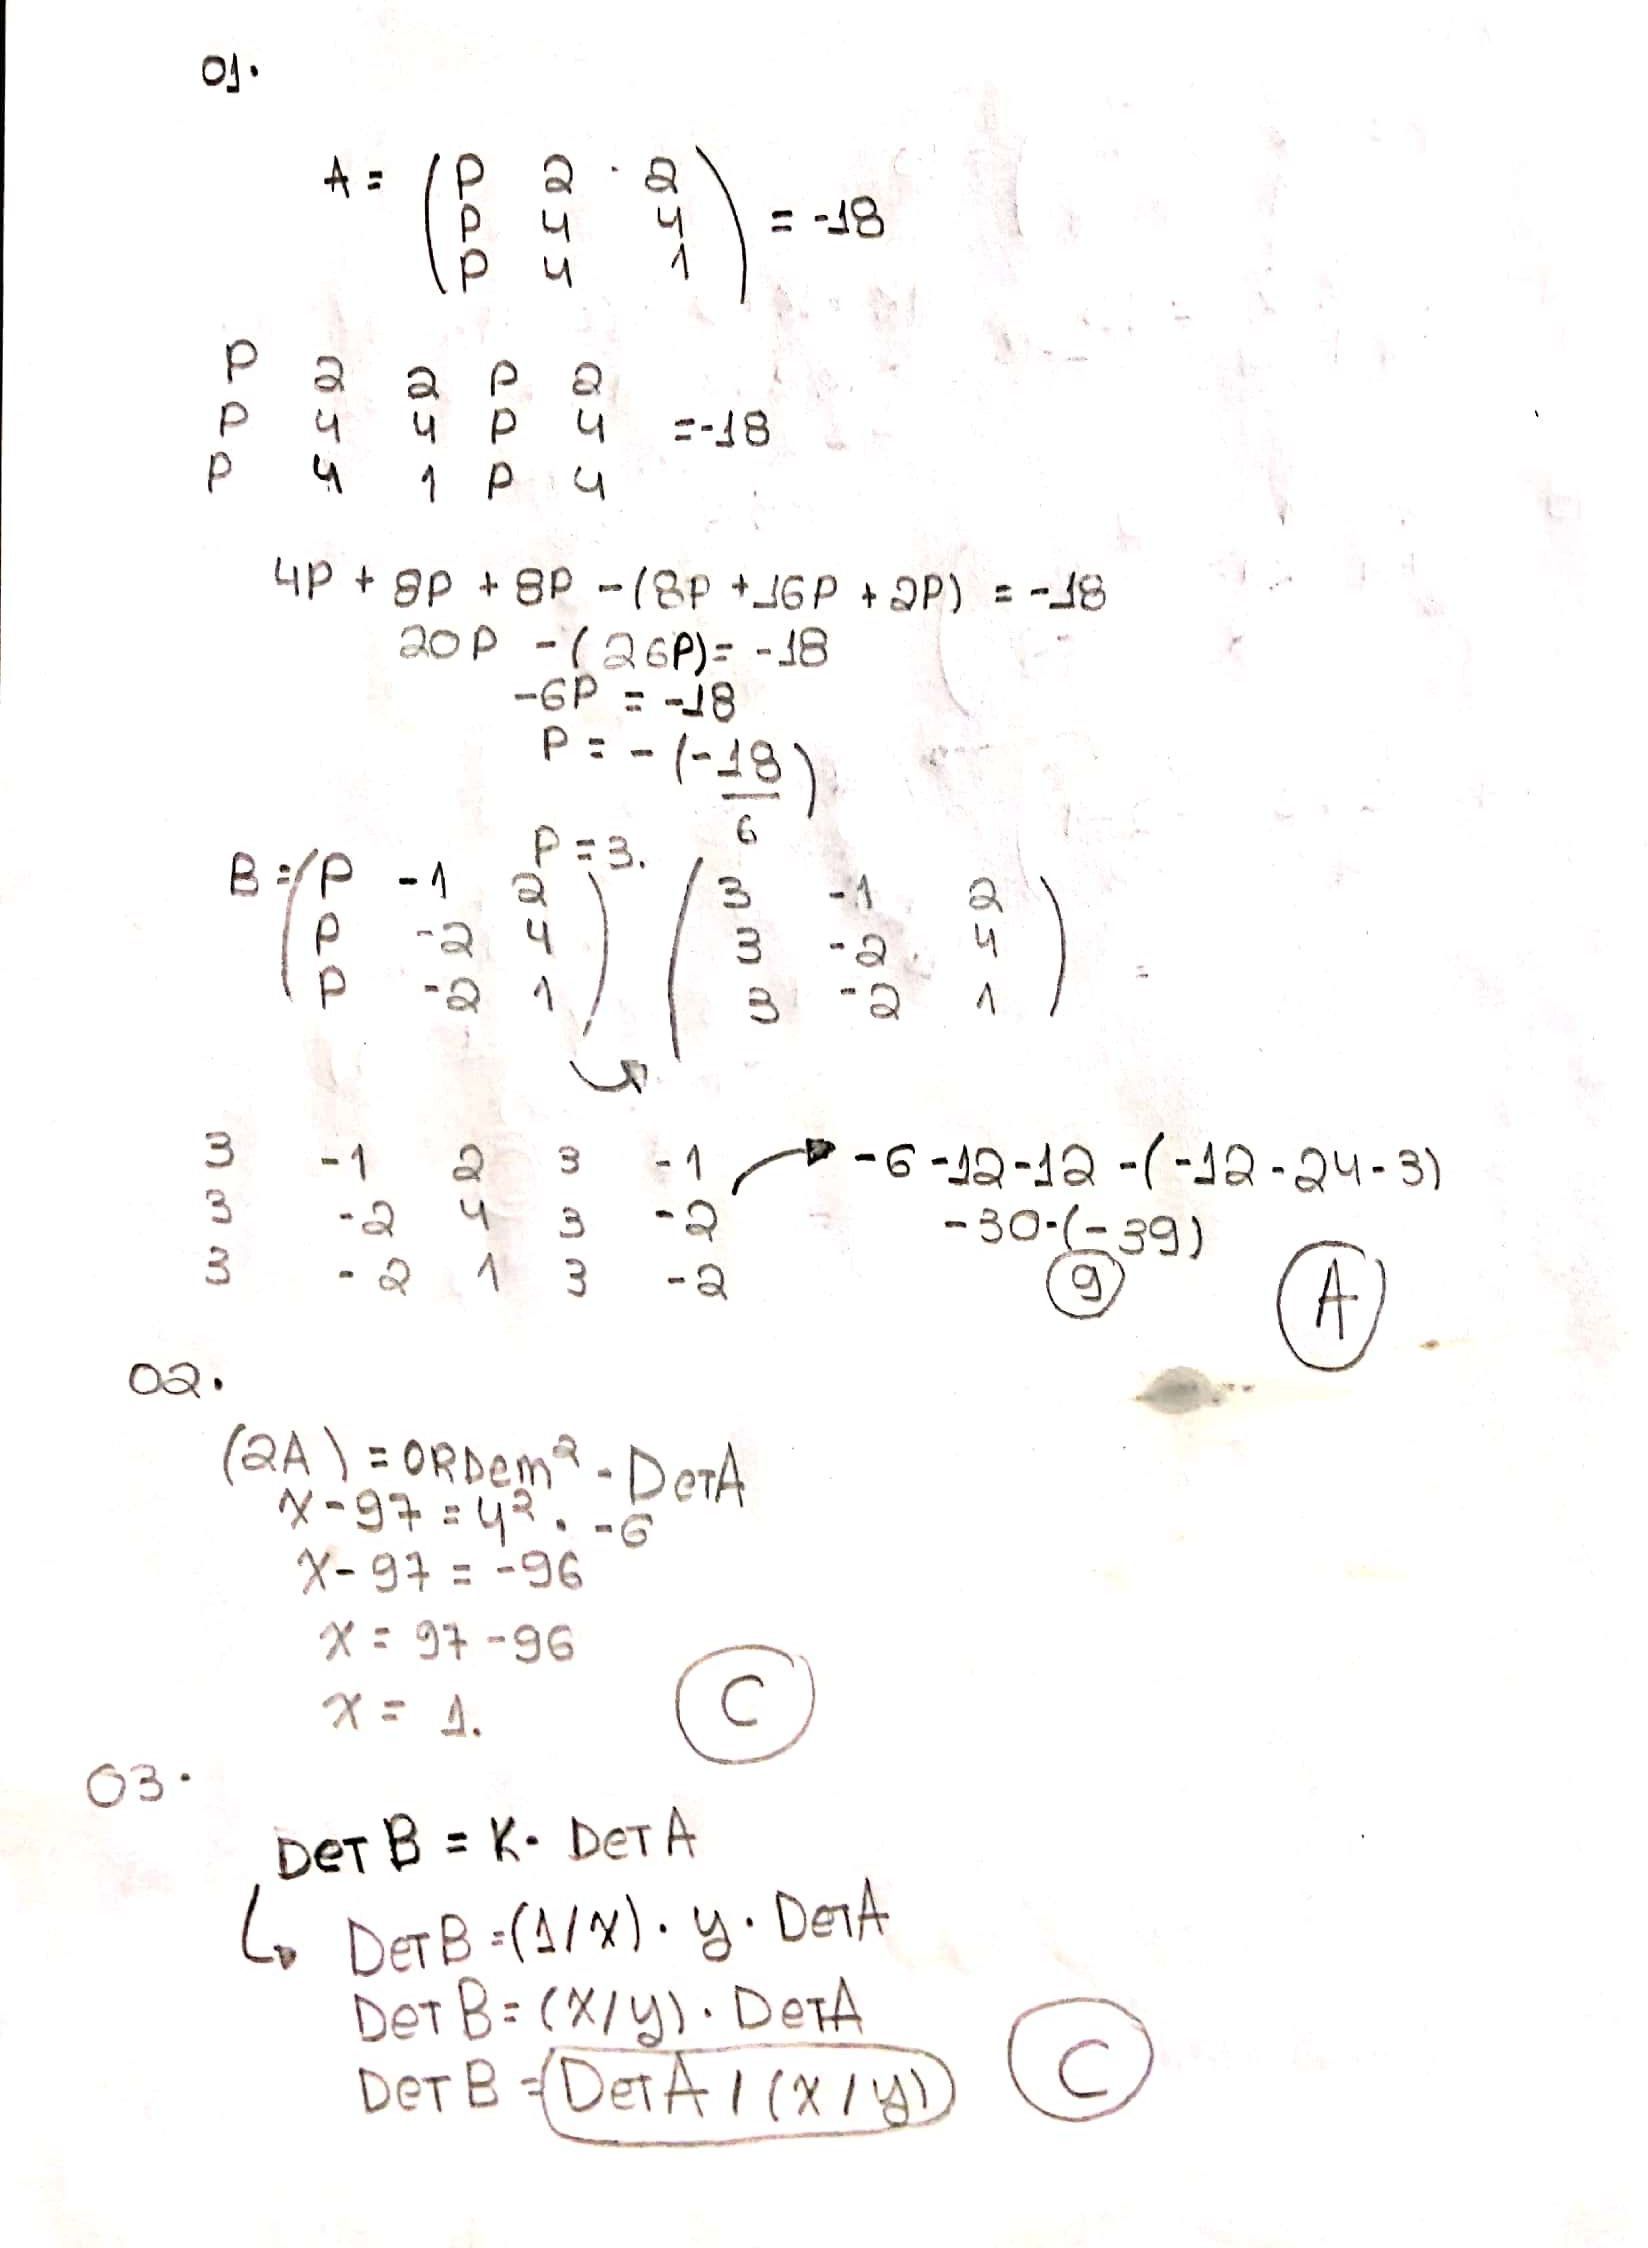 01.
A = (P 2 2
P 4 4
P 4 1) = -18
P 2 2 P 2
P 4 4 P 4 =-18
P 4 1 P 4
4P + 8P + 8P -(8P +16P + 2P) = -18
20P -(26P)= -18
-6P = -18
P = - (-18/6)
P = 3.
B = (P -1 2
P -2 4
P -2 1)
(3 -1 2
3 -2 4
3 -2 1)
3 -1 2 3 -1
3 -2 4 3 -2
3 -2 1 3 -2
-6 -12 -12 -(-12 -24 -3)
-30-(-39)
9
A
02.
(2A) = ORDem² - DeTA
x - 97 = 4² . -6
x - 97 = -96
x = 97 -96
x = 1.
C
03.
DeT B = K. DeT A
DeT B =(1/x) . y . DeTA
DeT B = (x/y) . DeTA
DeT B = DeTA / (x / y)
C